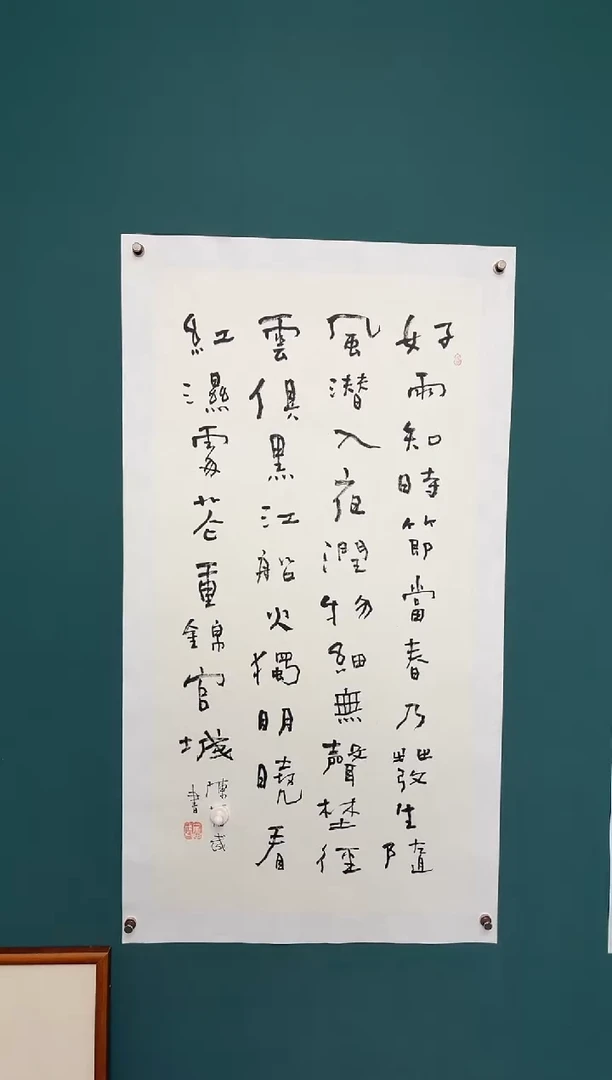 好雨知時節當春乃發生隨
風潜入夜潤物細無聲埜徑
雲俱黑江船火獨明曉看
紅濕處花重錦官城
陳
書